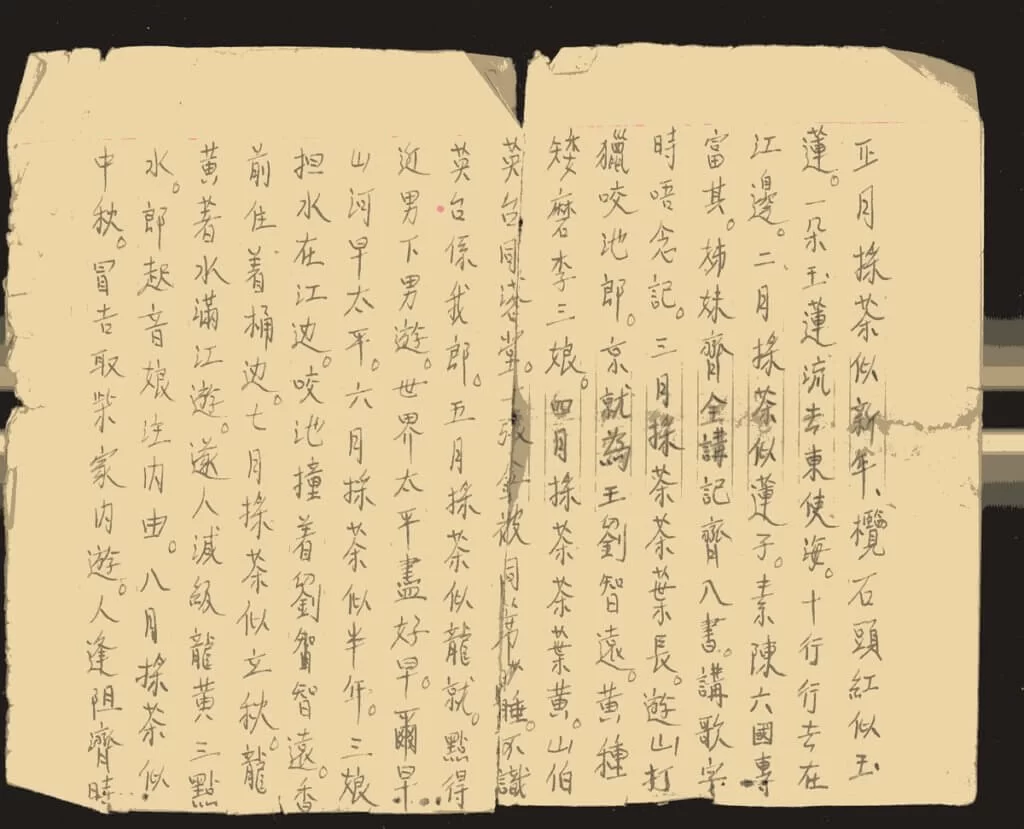 正月採茶似新年、欖石頭紅似玉
蓮。一朵玉蓮流去東使海。十行行去在
江邊。二月採茶似蓮子。素陳六國專
富其。姊妹齊全講記齊入書。講歌字
時唔念記。三月採茶茶葉長。遊山打
獵咬池郎。京就為王劉智遠。黃種
矮磨李三娘。四月採茶茶葉黃。山伯
英台同落堂。一張金被同席睡。不識
英台係我郎。五月採茶似龍就。點得
近男下男遊。世界太平盡好早。爾早
山河早太平。六月採茶似半年。三娘
担水在江边。咬池撞着劉智遠。香
前住着桶边。七月採茶似立秋。龍
黃著水滿江遊。遂人減級龍黃三點
水。郎起音娘注内由。八月採茶似
中秋。冒吉取柴家内遊。人逢阻齊時